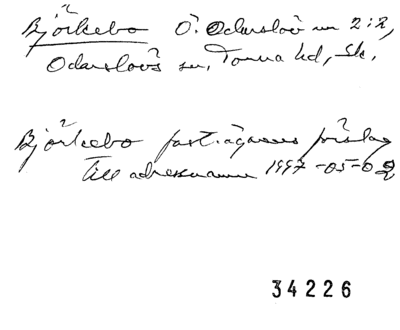 Björkebo Ö. Odarslöv nr 2:2,
Odarslövs sn, Torna hd, Sk.
Björkebo fast.ägarens förslag
till adressnamn 1997-05-02
34226